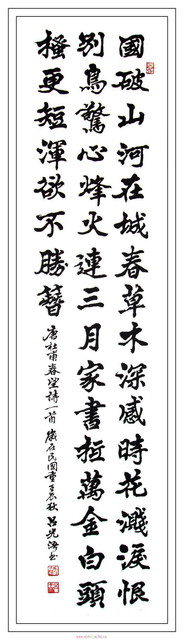 國破山河在城春草木深感時花濺淚恨
别鳥驚心烽火連三月家書抵萬金白頭
搔更短渾欲不勝簪
唐杜甫春望詩一首 歲在民國重壬辰秋 呂光浯書